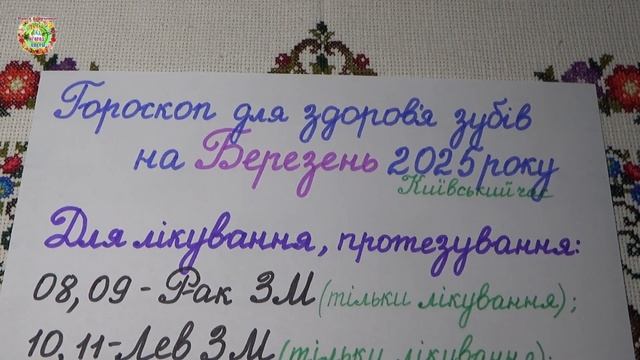 Гороскоп для здоров'я зубів
на Березень 2025 року
Київський час
Для лікування, протезування:
08, 09 - Рак ЗМ (тільки лікування);
10, 11 - Лев ЗМ (тільки лікування)